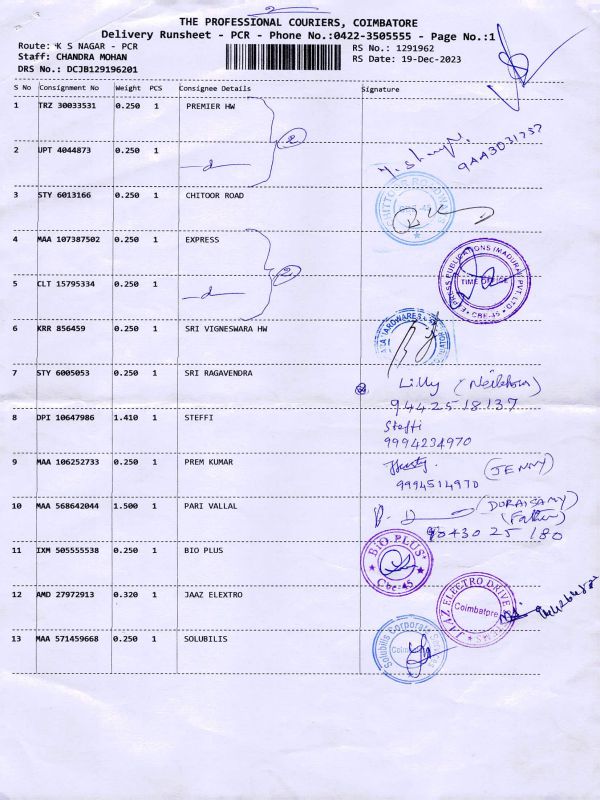 2
THE PROFESSIONAL COURIERS, COIMBATORE
Delivery Runsheet - PCR - Phone No.:0422-3505555 - Page No.:1
Route: K S NAGAR - PCR RS No.: 1291962
Staff: CHANDRA MOHAN RS Date: 19-Dec-2023
DRS No.: DCJB129196201
S No Consignment No Weight PCS Consignee Details Signature
1 TRZ 30033531 0.250 1 PREMIER HW
2
2 UPT 4044873 0.250 1
3 STY 6013166 0.250 1 CHITOOR ROAD
4 MAA 107387502 0.250 1 EXPRESS
2
TIME OFFICE
CBE-45
5 CLT 15795334 0.250 1
6 KRR 856459 0.250 1 SRI VIGNESWARA HW
7 STY 6005053 0.250 1 SRI RAGAVENDRA
Lilly
9442518137
8 DPI 10647986 1.410 1 STEFFI
Steffi
9994234970
9 MAA 106252733 0.250 1 PREM KUMAR
(JENNY)
9994514970
10 MAA 568642044 1.500 1 PARI VALLAL
(DURAISAMY)
(Father)
11 IXM 505555538 0.250 1 BIO PLUS
BIO PLUS
Cbe-45
12 AMD 27972913 0.320 1 JAAZ ELEXTRO
JAAZ ELECTRO DRIVE
Coimbatore
13 MAA 571459668 0.250 1 SOLUBILIS
Solubilis Corporate Services